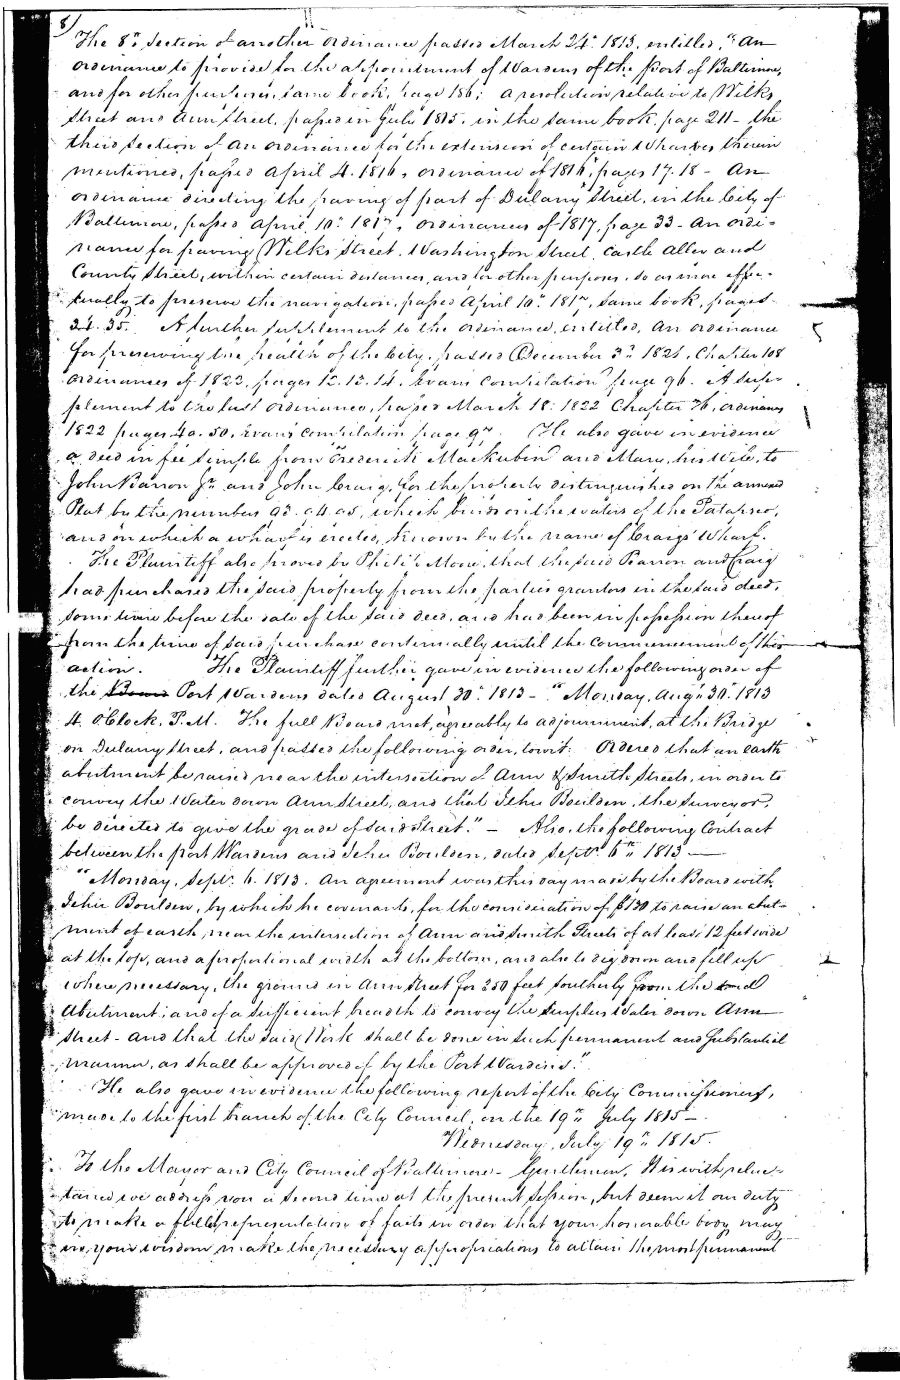 8)
The 8th. Section of another Ordinance passed March 24th. 1813, entitled, "An
ordinance to provide for the appointment of Wardens of the Port of Baltimore,
and for other purposes, same book, page 186; a resolution relative to Wilks
Street and Ann Street, passed in July 1815, in the same book, page 211 - the
third section of an ordinance for the extension of certain Wharves therein
mentioned, passed April 4. 1816, ordinance of 1816, pages 17.18 - An
ordinance directing the paving of part of Dulany Street, in the City of
Baltimore, passed April 10th. 1817, ordinances of 1817, page 33 - An ordi-
nance for paving Wilks Street, Washington Street, Castle Alley and
County Street, within certain distances, and for other purposes, so as more effec-
tually to preserve the navigation, passed April 10th. 1817, same book, pages
34.35. A further supplement to the ordinance, entitled, an ordinance
for preserving the health of the City, passed December 3rd 1821, Chapter 108
ordinances of 1822, pages 12.13.14, Evans' compilation page 96. A sup-
plement to the last ordinance, passed March 18: 1822 Chapter 76, ordinances
1822 pages 49.50, Evans' compilation page 97. He also gave in evidence
a deed in fee simple from Frederick Mackubin and Mary, his Wife, to
John Pearson Jr. and John Craig, for the property distinguished on the annexed
Plat by the numbers 93.94.95, which binds on the waters of the Patapsco,
and on which a wharf is erected, known by the name of Craig's Wharf.
The Plaintiff also proved by Philip Moore, that the said Pearson and Craig
had purchased the said property from the parties grantors in the said deed,
some time before the date of the said deed, and had been in possession thereof
from the time of said purchase continually until the commencement of this
action. The Plaintiff further gave in evidence the following order of
the Board Port Wardens dated August 30th. 1813 - "Monday, Augst. 30th. 1813
4. O'Clock, P.M. The full Board met, agreeably to adjournment, at the Bridge
on Dulany Street, and passed the following order, towit: Ordered that an earth
abutment be raised near the intersection of Ann & Smith Streets, in order to
convey the Water down Ann Street, and that Jehu Boulden, the Surveyor,
be directed to give the grade of said Street." - Also, the following Contract
between the port Wardens and Jehu Boulden, dated Septr. 6th. 1813 -
"Monday, Septr. 6. 1813. An agreement was this day made by the Board with
Jehu Boulden, by which he covenants, for the consideration of $130 to raise an abut-
ment of earth, near the intersection of Ann and Smith Streets of at least 12 feet wide
at the top, and a proportional width at the bottom, and also to dig down and fill up
where necessary, the ground in Ann Street for 250 feet southerly from the said
abutment; and of a sufficient breadth to convey the surplus Water down Ann
Street - and that the said Work shall be done in such permanent and substantial
manner, as shall be approved of by the Port Wardens."
He also gave in evidence the following report of the City Commissioners,
made to the first branch of the City Council, on the 19th. July 1815 -
Wednesday, July 19th. 1815.
To the Mayor and City Council of Baltimore - Gentlemen, It is with reluc-
tance we address you a second time at the present session, but deem it our duty
to make a full representation of facts in order that your honorable body may
in your wisdom make the necessary appropriations to attain the most permanent